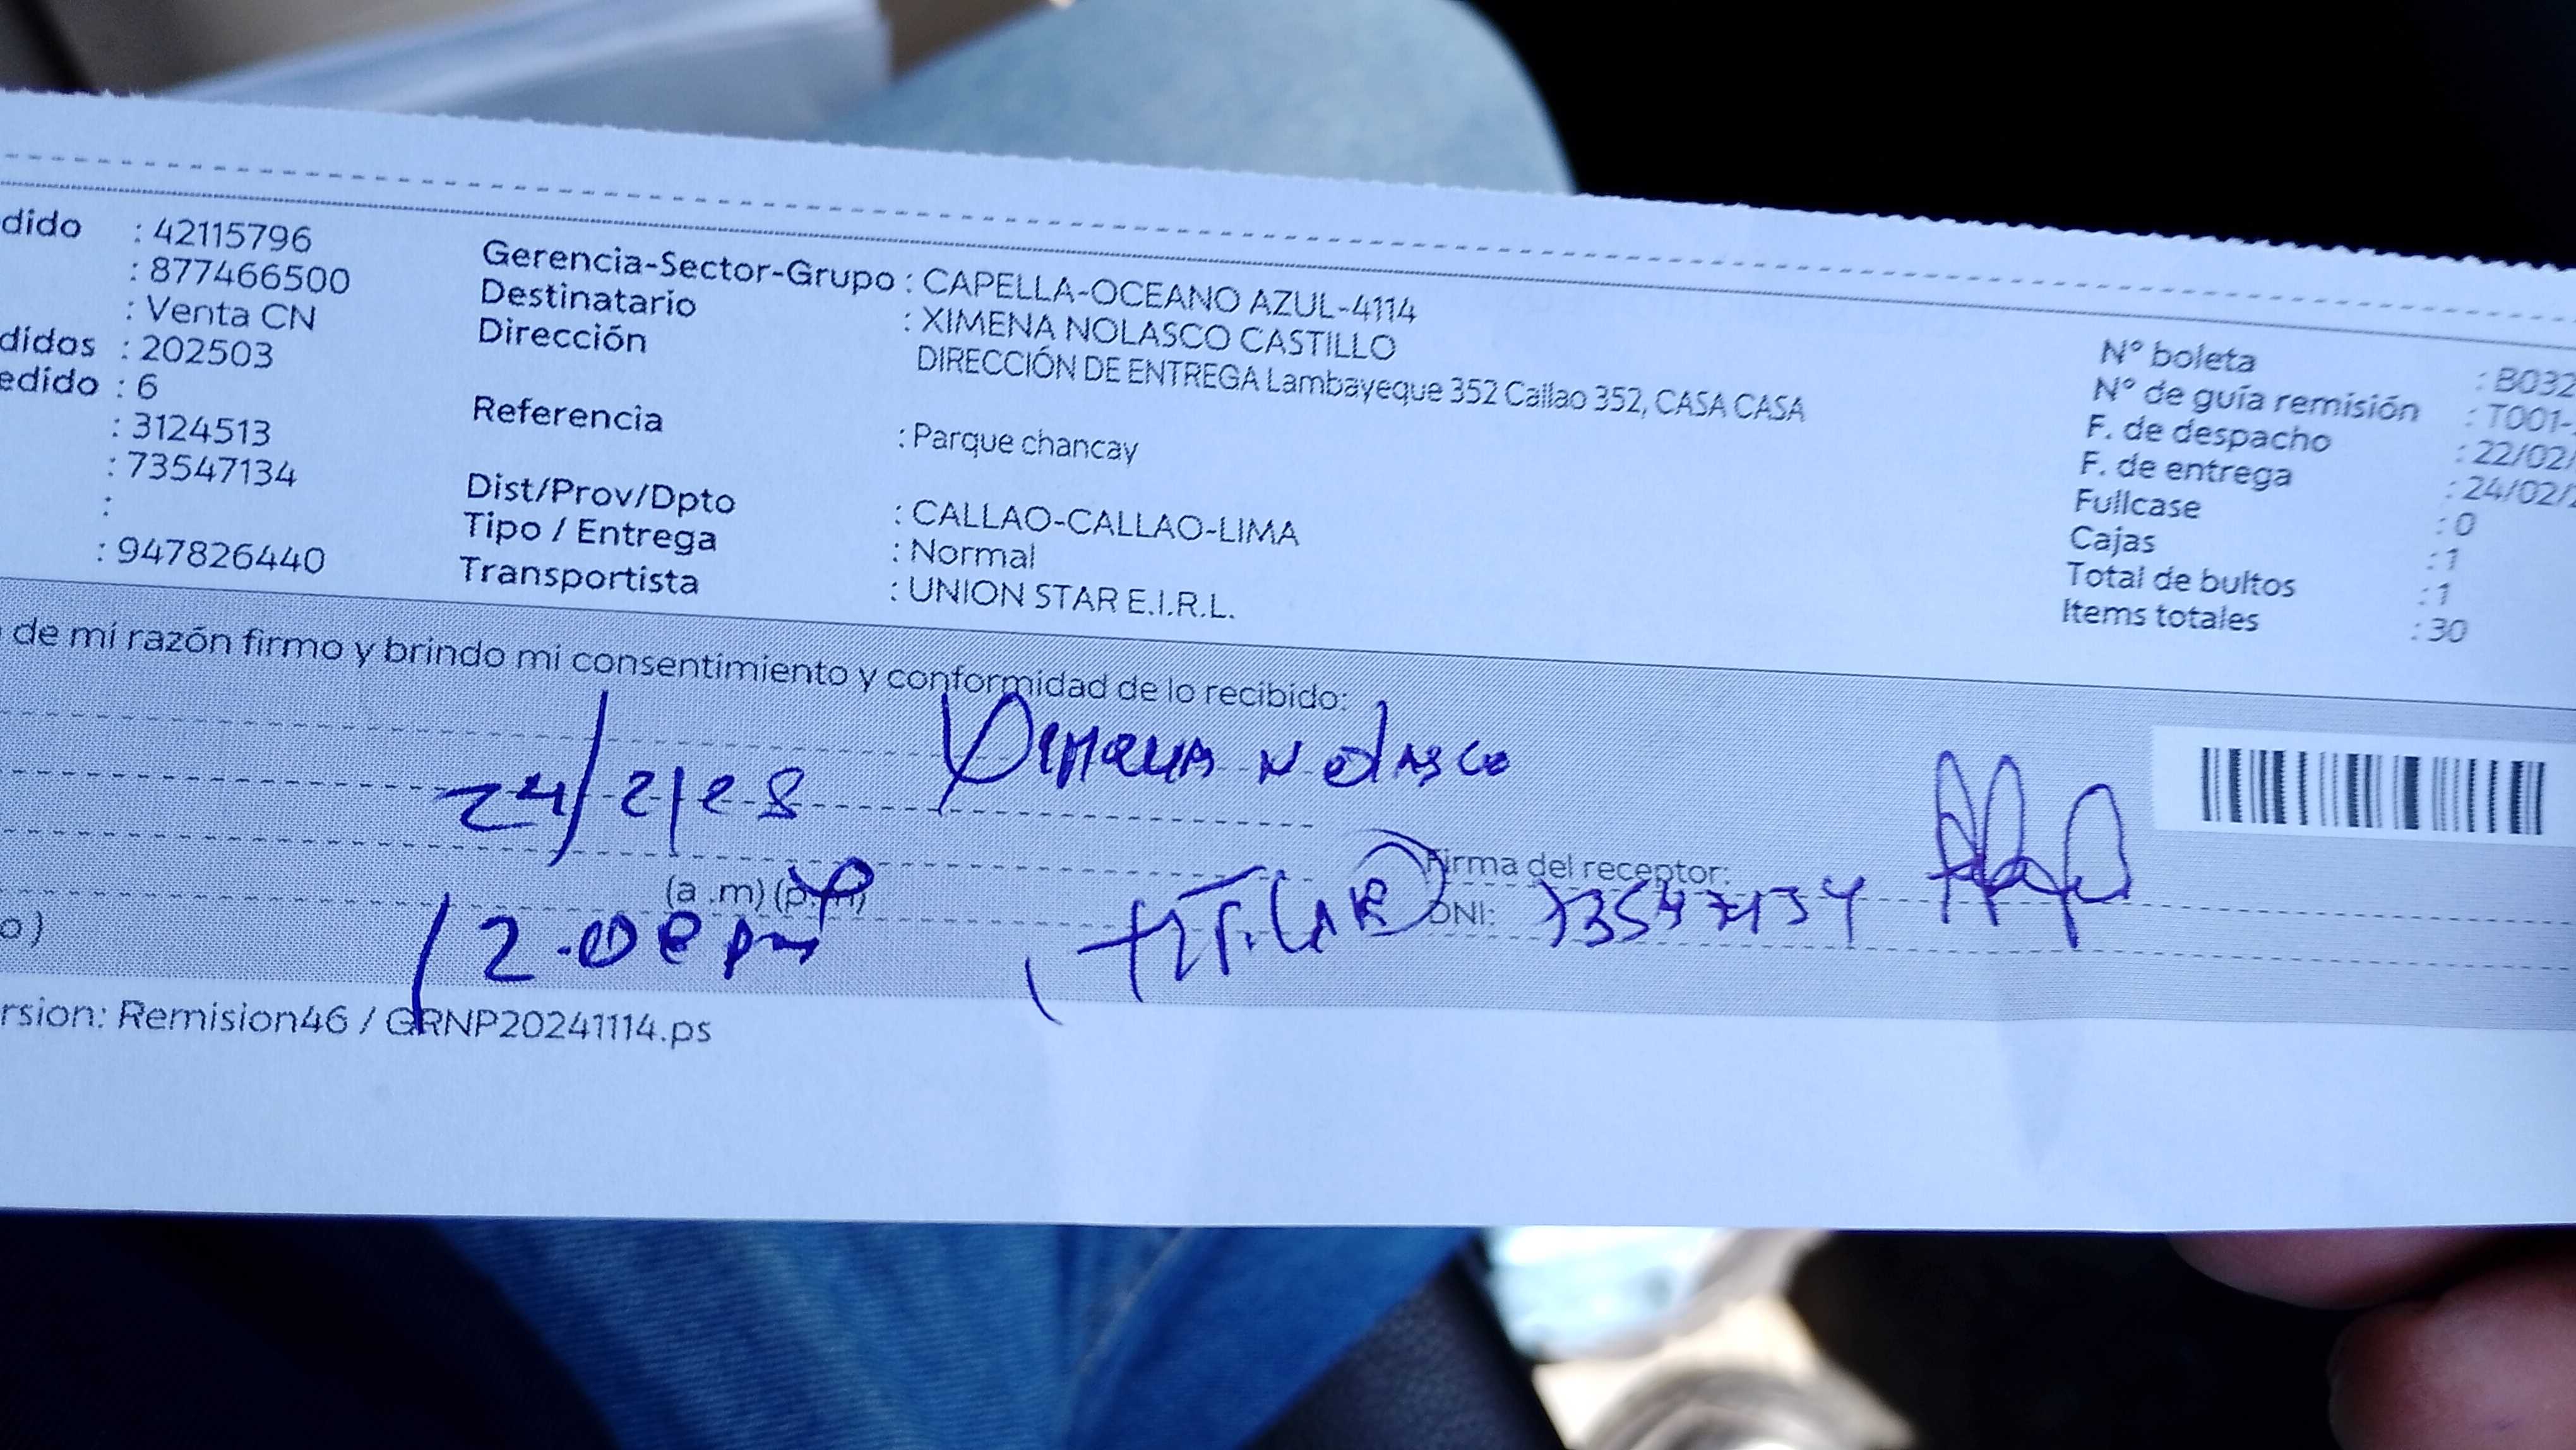 dido : 42115796
: 877466500
: Venta CN
didos : 202503
edido : 6
: 3124513
: 73547134
:
: 947826440
Gerencia-Sector-Grupo : CAPELLA-OCEANO AZUL-4114
Destinatario : XIMENA NOLASCO CASTILLO
Dirección DIRECCIÓN DE ENTREGA Lambayeque 352 Callao 352, CASA CASA
Referencia : Parque chancay
Dist/Prov/Dpto : CALLAO-CALLAO-LIMA
Tipo / Entrega : Normal
Transportista : UNION STAR E.I.R.L.
N° boleta : B032
N° de guía remisión : T001-
F. de despacho : 22/02/
F. de entrega : 24/02/2
Fullcase : 0
Cajas : 1
Total de bultos : 1
Items totales : 30
de mi razón firmo y brindo mi consentimiento y conformidad de lo recibido:
XIMENA NOLASCO
24/2/25
(a .m) (p.m)
Firma del receptor:
12.00 pm
TITULAR
DNI: 73547134
o)
rsion: Remision46 / GRNP20241114.ps